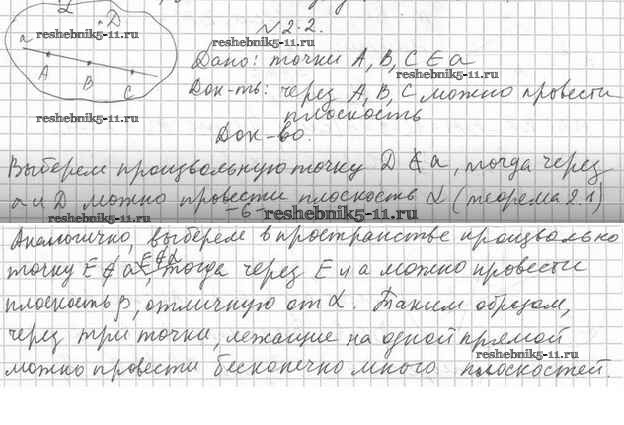 α
D
№2.2.
reshebnik5-11.ru
a
reshebnik5-11.ru
reshebnik5-11.ru
A
B
C
Дано: точки A, B, C ∈ a
Док-ть: через A, B, C можно провести
reshebnik5-11.ru
плоскость
reshebnik5-11.ru
Док-во.
Выберем произвольную точку D ∉ a, тогда через
a и D можно провести плоскость α (теорема 2.1)
reshebnik5-11.ru
-6-
reshebnik5-11.ru
Аналогично, выберем в пространстве произвольно
E ∉ α
точку E ∉ a, тогда через E и a можно провести
reshebnik5-11.ru
плоскость β, отличную от α. Таким образом,
reshebnik5-11.ru
через три точки, лежащие на одной прямой
reshebnik5-11.ru
можно провести бесконечно много плоскостей.
reshebnik5-11.ru